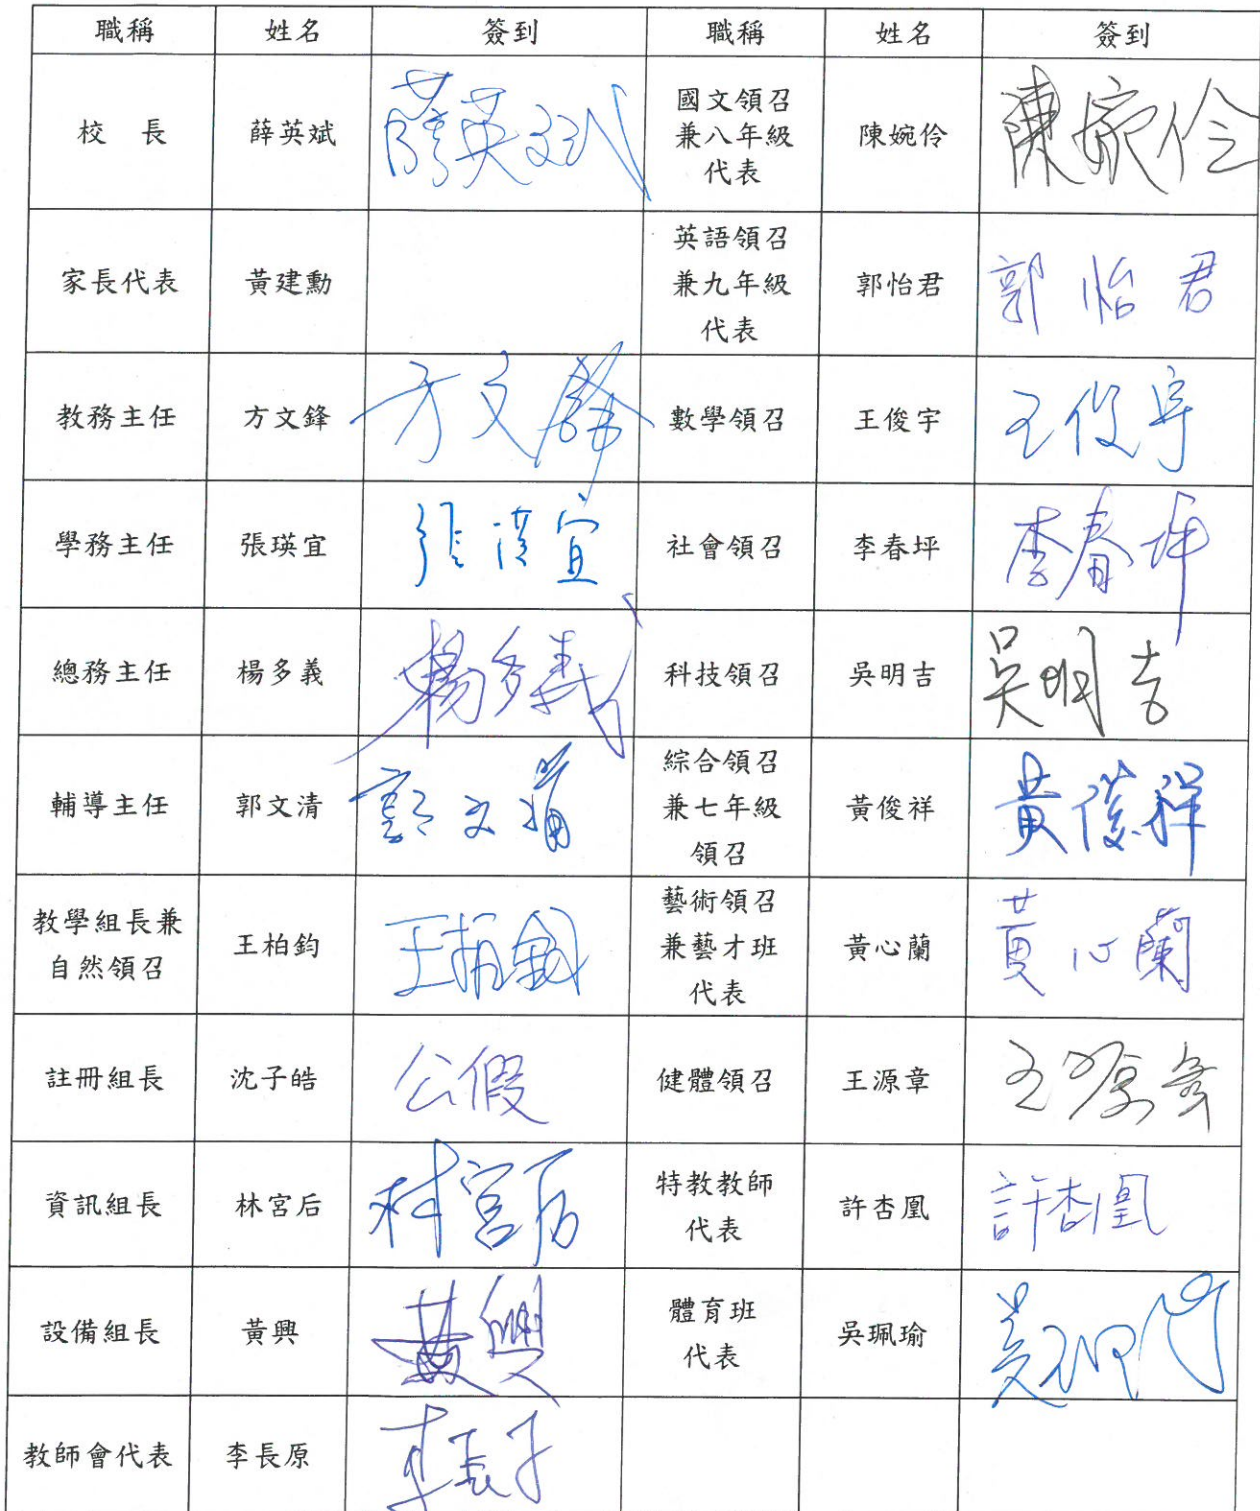 職稱 姓名 簽到 職稱 姓名 簽到
校 長 薛英斌 薛英斌 國文領召 兼八年級 代表 陳婉伶 陳婉伶
家長代表 黃建勳 英語領召 兼九年級 代表 郭怡君 郭怡君
教務主任 方文鋒 方文鋒 數學領召 王俊宇 王俊宇
學務主任 張瑛宜 張瑛宜 社會領召 李春坪 李春坪
總務主任 楊多義 楊多義 科技領召 吳明吉 吳明吉
輔導主任 郭文清 郭文清 綜合領召 兼七年級 領召 黃俊祥 黃俊祥
教學組長兼 自然領召 王柏鈞 王柏鈞 藝術領召 兼藝才班 代表 黃心蘭 黃心蘭
註冊組長 沈子皓 公假 健體領召 王源章 王源章
資訊組長 林宮后 林宮后 特教教師 代表 許杏凰 許杏凰
設備組長 黃興 黃興 體育班 代表 吳珮瑜
教師會代表 李長原